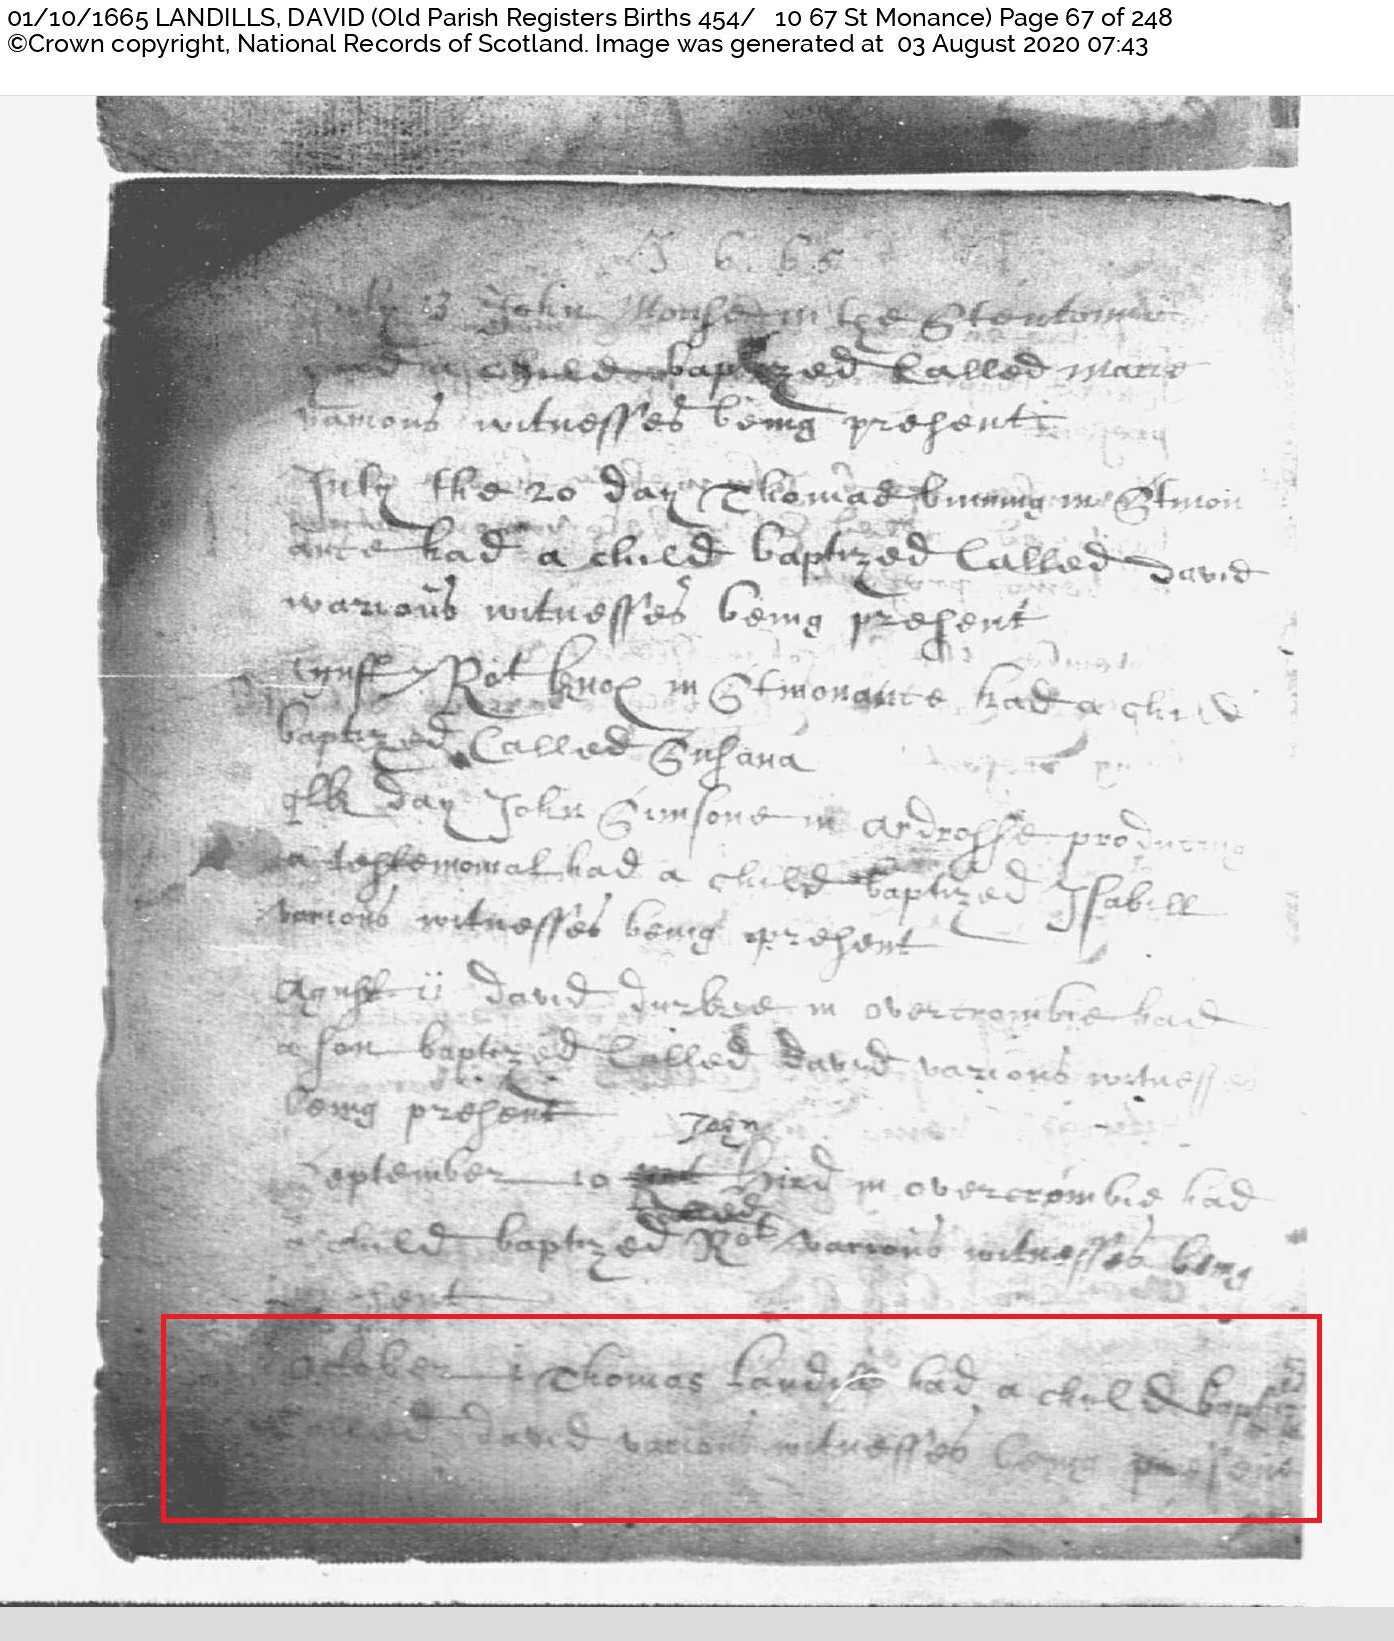 01/10/1665 LANDILLS, DAVID (Old Parish Registers Births 454/ 10 67 St Monance) Page 67 of 248
©Crown copyright, National Records of Scotland. Image was generated at 03 August 2020 07:43
1665
July 13 John in the
had a child baptized called marie
various witnesses being present
July the 20 day Thomas binning in Stmon
ance had a child baptized called david
various witnesses being present
Rot knox in Stmonance had a child
baptized called Susana
qlk day John Simsone in ardrosse producing
a testemonial had a child baptized Isabell
various witnesses being present
Agust 11 david in overcrombie had
a son baptized called david various witnesses
being present
September 10 hird in overcrombie had
a child baptized Rot various witnesses being
present
October 1 Thomas had a child bapti
called david various witnesses being present